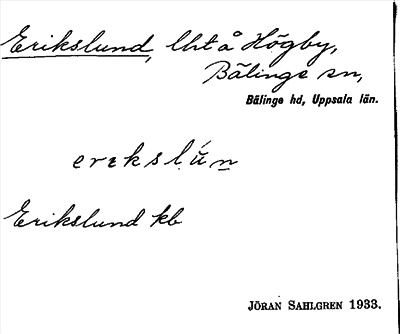 Erikslund, lht å Högby,
Bälinge sn,
Bälinge hd, Uppsala län.
erɩkslụ́n̲
Erikslund kb
JÖRAN SAHLGREN 1933.